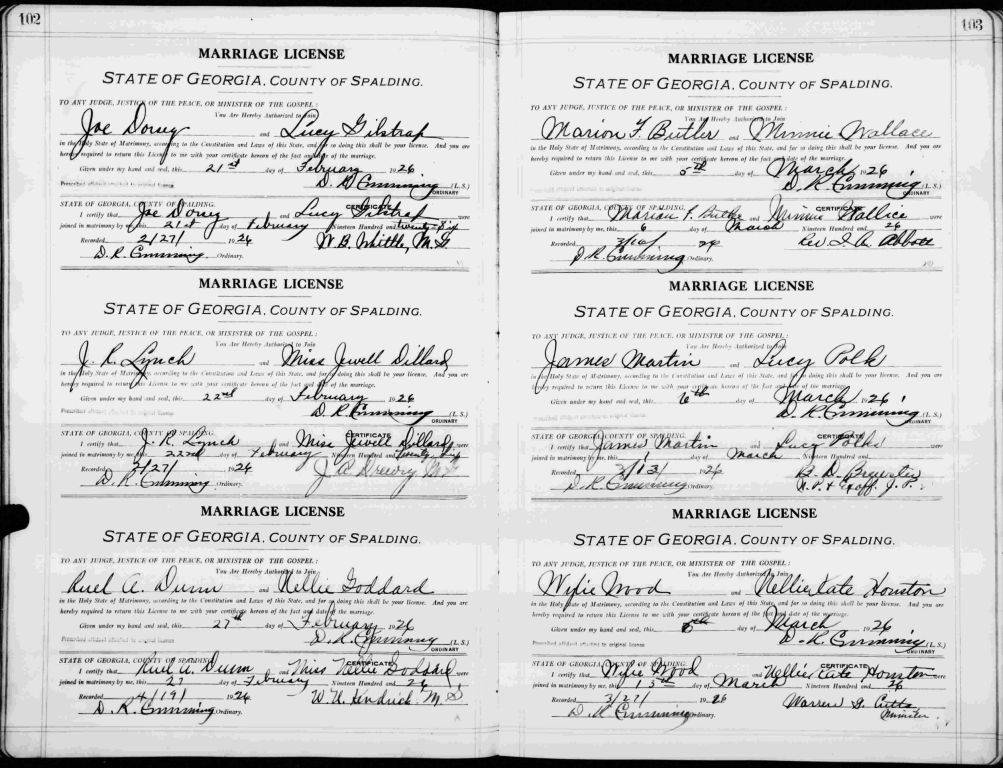 102
MARRIAGE LICENSE
STATE OF GEORGIA, COUNTY OF SPALDING.
TO ANY JUDGE, JUSTICE OF THE PEACE, OR MINISTER OF THE GOSPEL:
You Are Hereby Authorized to Join
Joe Dorsey and Lucy Gilstrap
in the Holy State of Matrimony, according to the Constitution and Laws of this State, and for so doing this shall be your license. And you are
hereby required to return this License to me with your certificate hereon of the fact and date of the marriage.
Given under my hand and seal, this 21st day of February 1926
D. R. Cumming (L. S.)
Prescribed affidavit attached to original license
ORDINARY
CERTIFICATE
STATE OF GEORGIA, COUNTY OF SPALDING.
I certify that Joe Dorsey and Lucy Gilstrap were
joined in matrimony by me, this 21st day of February Nineteen Hundred and twenty-six
Recorded 2/27/ 1926 W. B. Whittle, M. G.
D. R. Cumming Ordinary.
MARRIAGE LICENSE
STATE OF GEORGIA, COUNTY OF SPALDING.
TO ANY JUDGE, JUSTICE OF THE PEACE, OR MINISTER OF THE GOSPEL:
You Are Hereby Authorized to Join
J. R. Lynch and Miss Jewell Dillard
in the Holy State of Matrimony, according to the Constitution and Laws of this State, and for so doing this shall be your license. And you are
hereby required to return this License to me with your certificate hereon of the fact and date of the marriage.
Given under my hand and seal, this 22nd day of February 1926
D. R. Cumming (L. S.)
Prescribed affidavit attached to original license
ORDINARY
CERTIFICATE
STATE OF GEORGIA, COUNTY OF SPALDING.
I certify that J. R. Lynch and Miss Jewell Dillard were
joined in matrimony by me, this 22nd day of February Nineteen Hundred and Twenty Six
Recorded 2/27/ 1926 J. A. Drewry M. G.
D. R. Cumming Ordinary.
MARRIAGE LICENSE
STATE OF GEORGIA, COUNTY OF SPALDING.
TO ANY JUDGE, JUSTICE OF THE PEACE, OR MINISTER OF THE GOSPEL:
You Are Hereby Authorized to Join
Ruel A. Dunn and Nellie Goddard
in the Holy State of Matrimony, according to the Constitution and Laws of this State, and for so doing this shall be your license. And you are
hereby required to return this License to me with your certificate hereon of the fact and date of the marriage.
Given under my hand and seal, this 27th day of February 1926
D. R. Cumming (L. S.)
Prescribed affidavit attached to original license
ORDINARY
CERTIFICATE
STATE OF GEORGIA, COUNTY OF SPALDING.
I certify that Ruel A. Dunn and Miss Nellie Goddard were
joined in matrimony by me, this 27 day of February Nineteen Hundred and 26
Recorded 4/19/ 1926 W. H. Hendrick M. G.
D. R. Cumming Ordinary.
103
MARRIAGE LICENSE
STATE OF GEORGIA, COUNTY OF SPALDING.
TO ANY JUDGE, JUSTICE OF THE PEACE, OR MINISTER OF THE GOSPEL:
You Are Hereby Authorized to Join
Marion F. Butler and Minnie Wallace
in the Holy State of Matrimony, according to the Constitution and Laws of this State, and for so doing this shall be your license. And you are
hereby required to return this License to me with your certificate hereon of the fact and date of the marriage.
Given under my hand and seal, this 5th day of March 1926
D. R. Cumming (L. S.)
Prescribed affidavit attached to original license
ORDINARY
CERTIFICATE
STATE OF GEORGIA, COUNTY OF SPALDING.
I certify that Marion F. Butler and Minnie Wallace were
joined in matrimony by me, this 6 day of March Nineteen Hundred and 26
Recorded 3/10/ 26 Rev. Abbott
D. R. Cumming Ordinary.
MARRIAGE LICENSE
STATE OF GEORGIA, COUNTY OF SPALDING.
TO ANY JUDGE, JUSTICE OF THE PEACE, OR MINISTER OF THE GOSPEL:
You Are Hereby Authorized to Join
James Martin and Lucy Polk
in the Holy State of Matrimony, according to the Constitution and Laws of this State, and for so doing this shall be your license. And you are
hereby required to return this License to me with your certificate hereon of the fact and date of the marriage.
Given under my hand and seal, this 6th day of March 1926
D. R. Cumming (L. S.)
Prescribed affidavit attached to original license
ORDINARY
CERTIFICATE
STATE OF GEORGIA, COUNTY OF SPALDING.
I certify that James Martin and Lucy Polk were
joined in matrimony by me, this day of March Nineteen Hundred and
Recorded 3/13/ 1926 B. D. Brewster
D. R. Cumming Ordinary. N. P. & Exoff. J. P.
MARRIAGE LICENSE
STATE OF GEORGIA, COUNTY OF SPALDING.
TO ANY JUDGE, JUSTICE OF THE PEACE, OR MINISTER OF THE GOSPEL:
You Are Hereby Authorized to Join
Wylie Wood and Nellie Kate Houston
in the Holy State of Matrimony, according to the Constitution and Laws of this State, and for so doing this shall be your license. And you are
hereby required to return this License to me with your certificate hereon of the fact and date of the marriage.
Given under my hand and seal, this day of March 1926
D. R. Cumming (L. S.)
Prescribed affidavit attached to original license
ORDINARY
CERTIFICATE
STATE OF GEORGIA, COUNTY OF SPALDING.
I certify that Wylie Wood and Nellie Kate Houston were
joined in matrimony by me, this 13th day of March Nineteen Hundred and 26
Recorded 3/27/ 1926 Warren G.
D. R. Cumming Ordinary. Minister